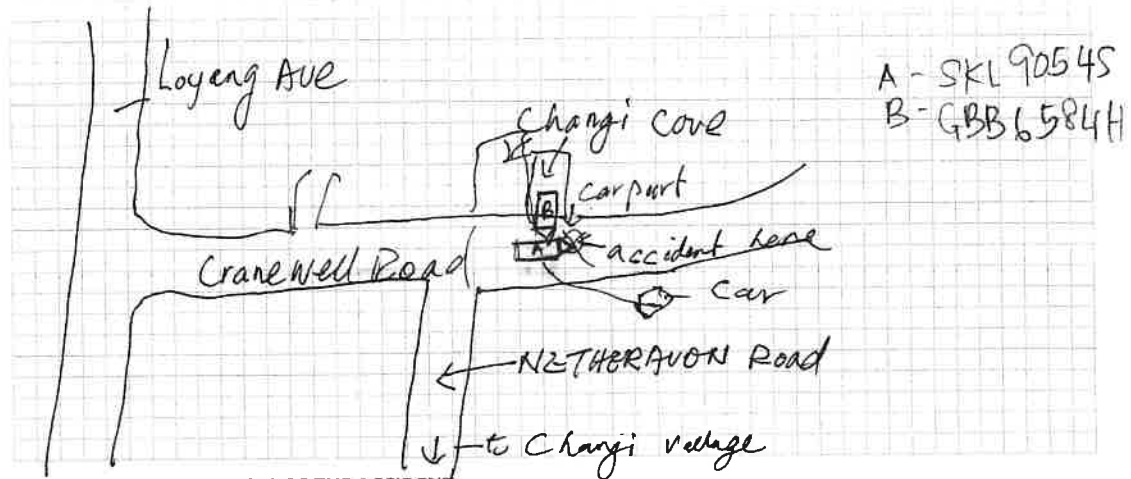 Loyang Ave
A - SKL 9054S
B - GBB6584H
Changi Cove
carpart
B
A
accident here
Cranewell Road
car
NETHERAVON Road
to Changi vellage